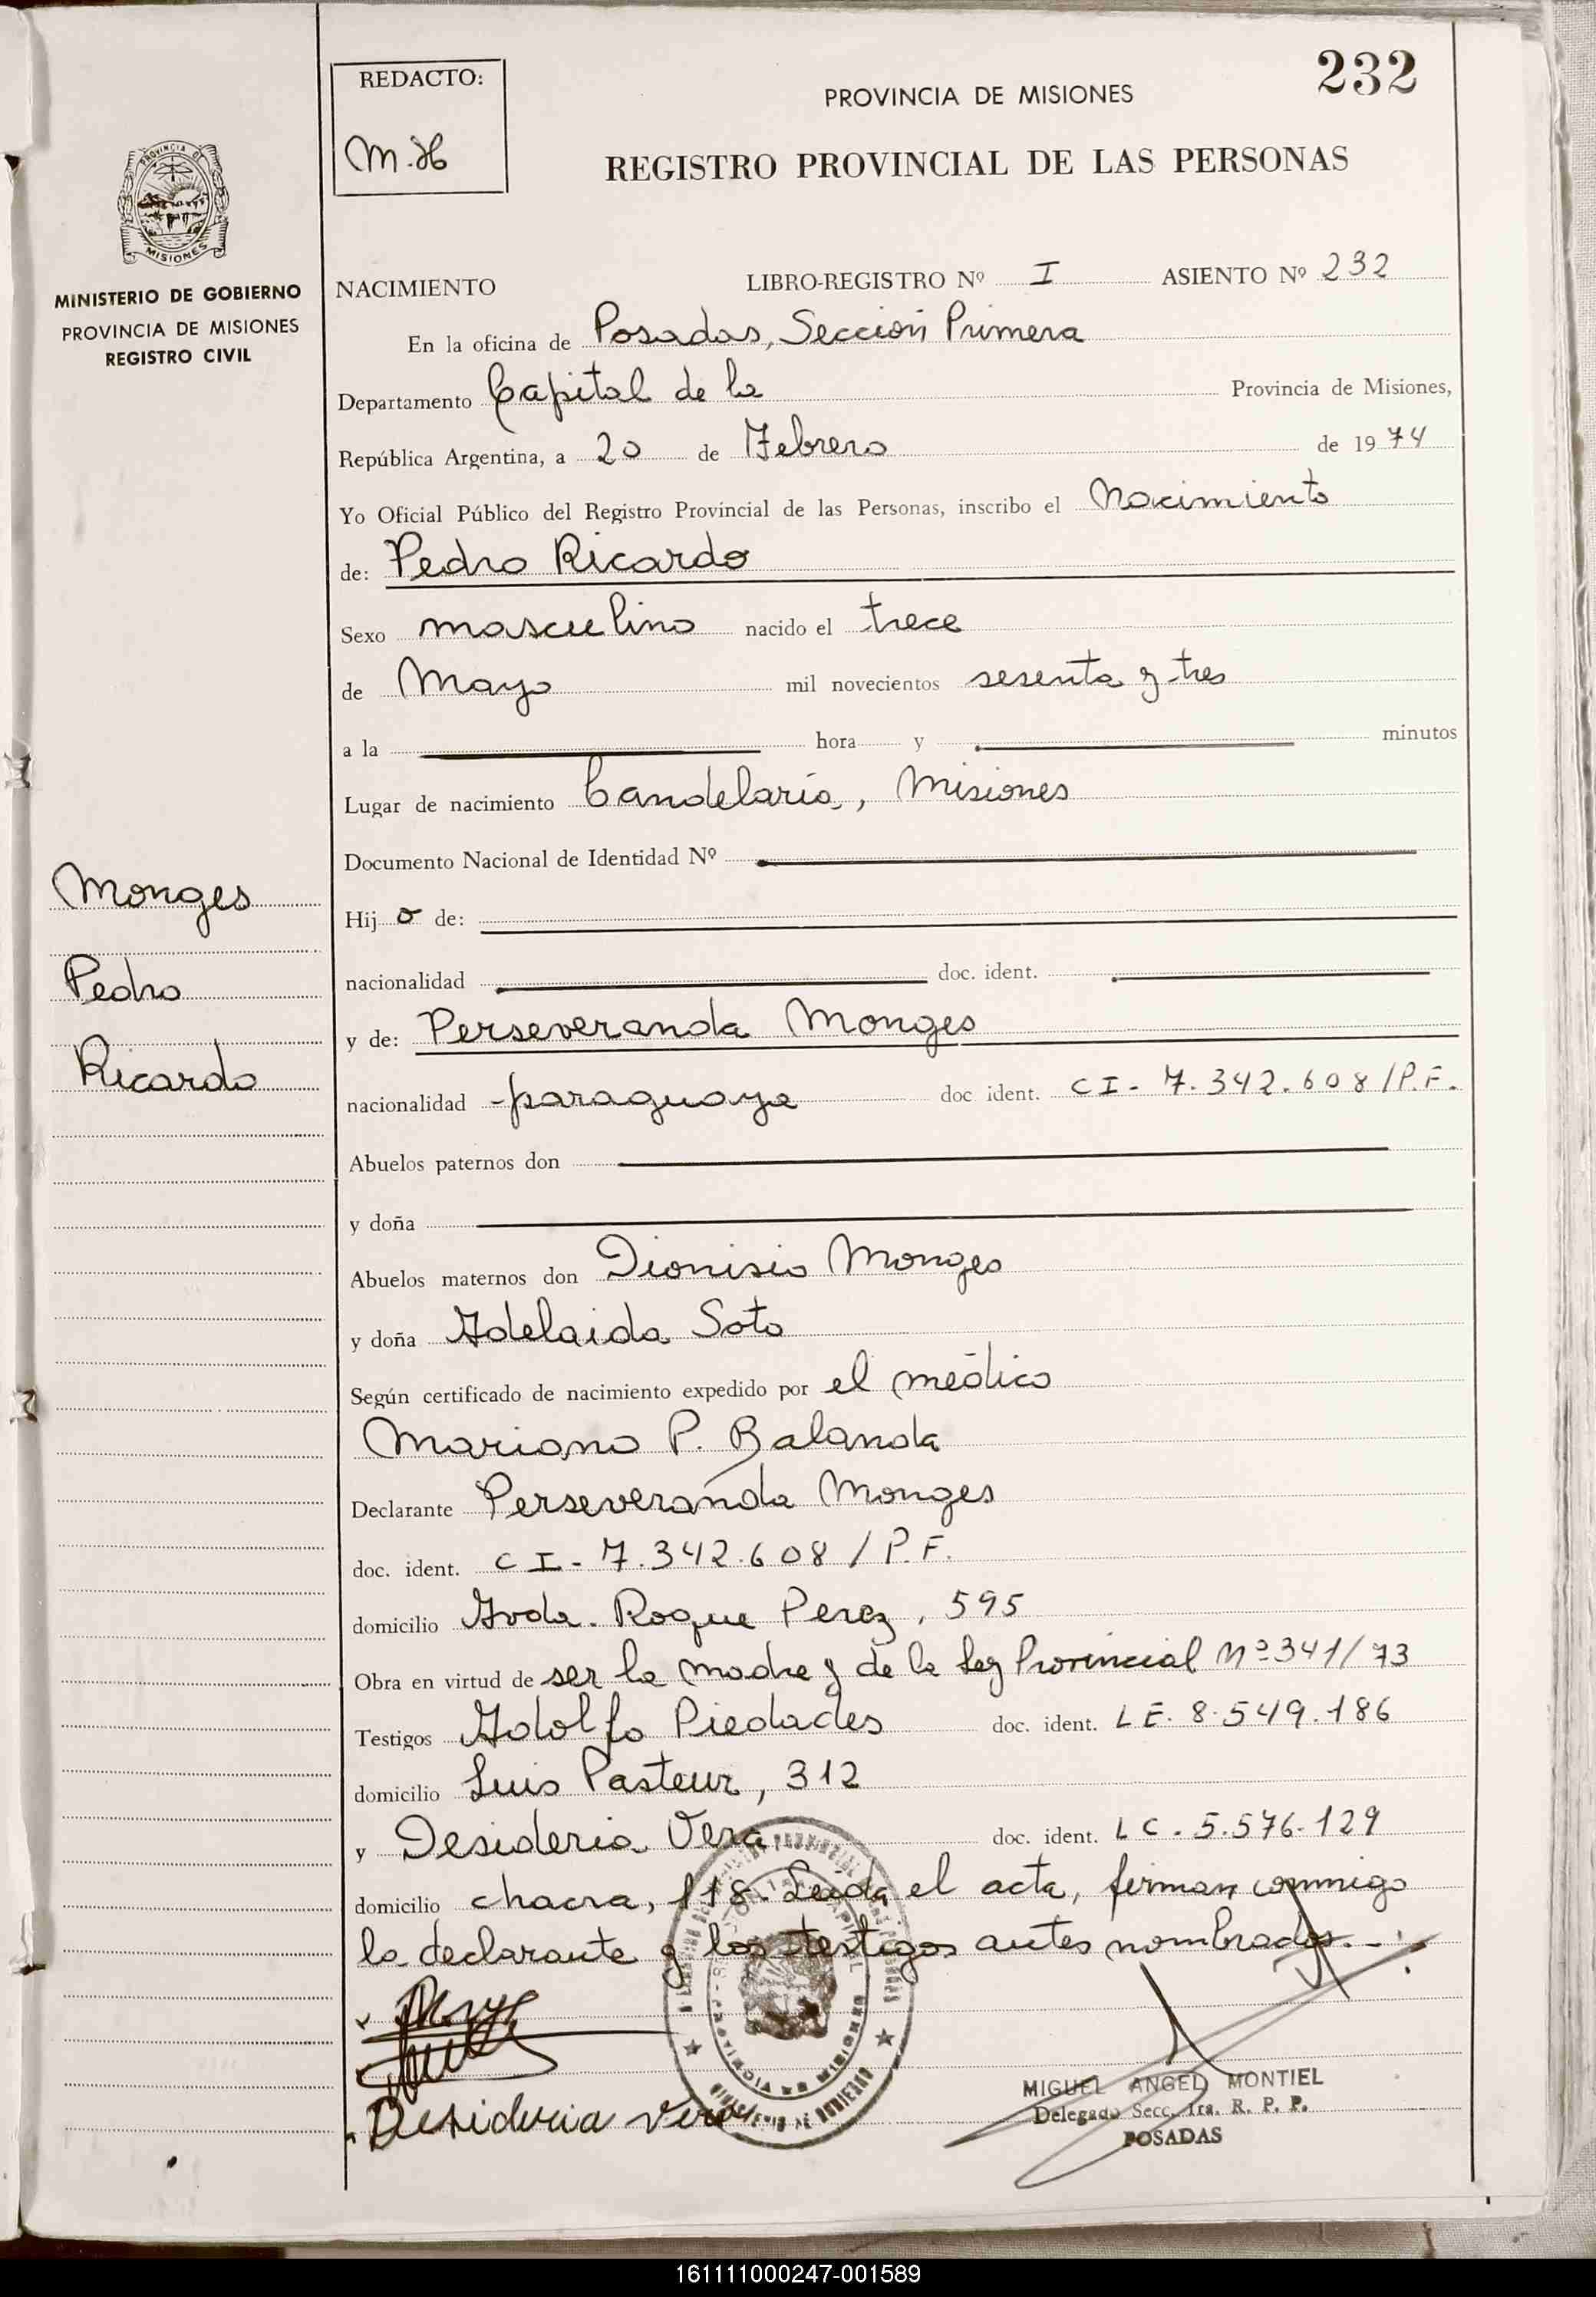 232
REDACTO:
M.H
PROVINCIA DE MISIONES
REGISTRO PROVINCIAL DE LAS PERSONAS
PROVINCIA DE
MISIONES
MINISTERIO DE GOBIERNO
PROVINCIA DE MISIONES
REGISTRO CIVIL
NACIMIENTO LIBRO-REGISTRO Nº I ASIENTO Nº 232
En la oficina de Posadas, Sección Primera
Departamento Capital de la Provincia de Misiones,
República Argentina, a 20 de Febrero de 1974
Yo Oficial Público del Registro Provincial de las Personas, inscribo el Nacimiento
de: Pedro Ricardo
Sexo masculino nacido el trece
de Mayo mil novecientos sesenta y tres
a la hora y minutos
Lugar de nacimiento Candelaria, Misiones
Documento Nacional de Identidad Nº
Monges
Pedro
Ricardo
Hijo de:
nacionalidad doc. ident.
y de: Perseveranda Monges
nacionalidad paraguaya doc ident. CI- 7.342.608/P.F.
Abuelos paternos don
y doña
Abuelos maternos don Dionisio Monges
y doña Adelaida Soto
Según certificado de nacimiento expedido por el médico
Mariano P. Balanda
Declarante Perseveranda Monges
doc. ident. CI- 7.342.608/P.F.
domicilio Avda. Roque Perez, 595
Obra en virtud de ser la madre y de la Ley Provincial Nº 341/73
Testigos Adolfo Piedades doc. ident. LE. 8.549.186
domicilio Luis Pasteur, 312
y Desideria Vera doc. ident. LC. 5.576.129
domicilio chacra, 118. Leída el acta, firman conmigo
la declarante y los testigos antes nombrados.-
Desideria Vera
MIGUEL ANGEL MONTIEL
Delegado Secc. 1ra. R. P. P.
POSADAS
161111000247-001589